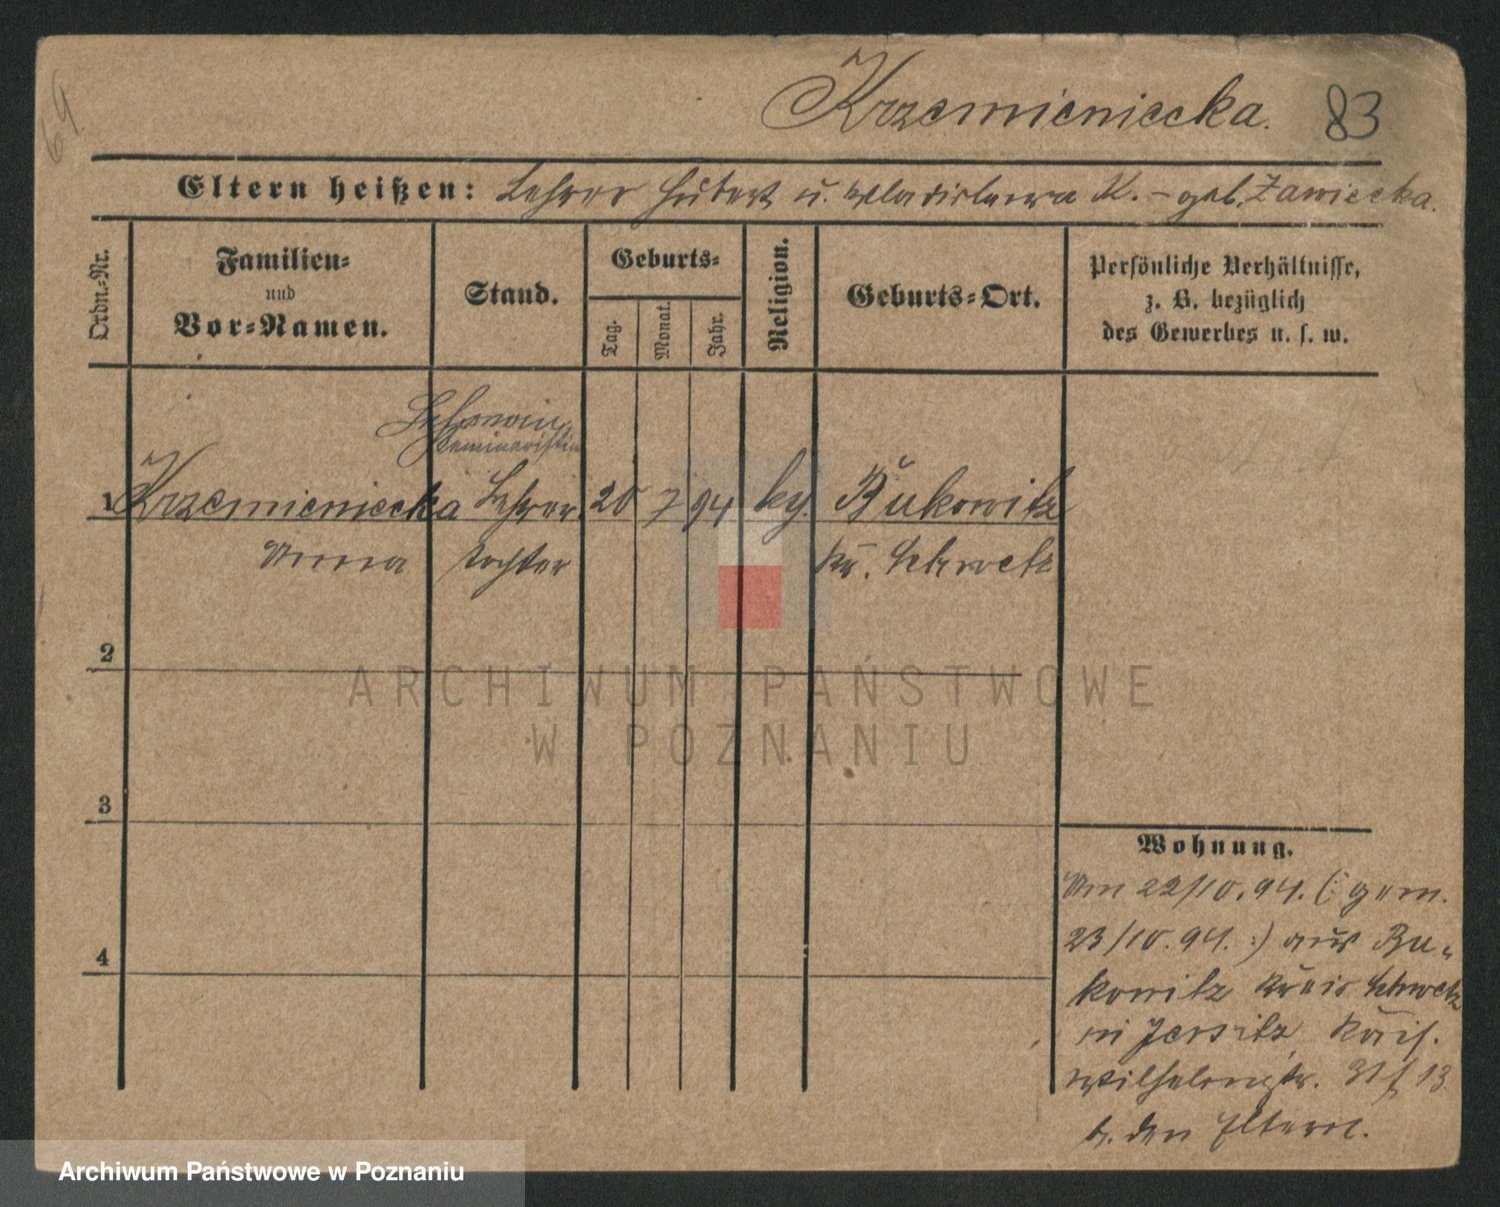 69.
Krzemieniecka. 83
Eltern heißen: Lehrer Hubert u. Wladislawa K. – geb. Zawiecka.
Ordn.-Nr.
Familien-
und
Vor-Namen.
Stand.
Geburts-
Tag.
Monat.
Jahr.
Religion.
Geburts-Ort.
Persönliche Verhältnisse,
z. B. bezüglich
des Gewerbes u. s. w.
Lehrerin
Seminaristin
1 Krzemieniecka Lehrer 20 7 94 Bukowitz
Anna tochter Kr. Schwetz
2
ARCHIWUM PAŃSTWOWE
W POZNANIU
3
4
Wohnung.
Am 22/10.94. (: gem.
23/10.94. :) aus Bu-
kowitz Kreis Schwetz
in Jersitz Kais.
Wilhelmstr. 13
b. den Eltern.
Archiwum Państwowe w Poznaniu